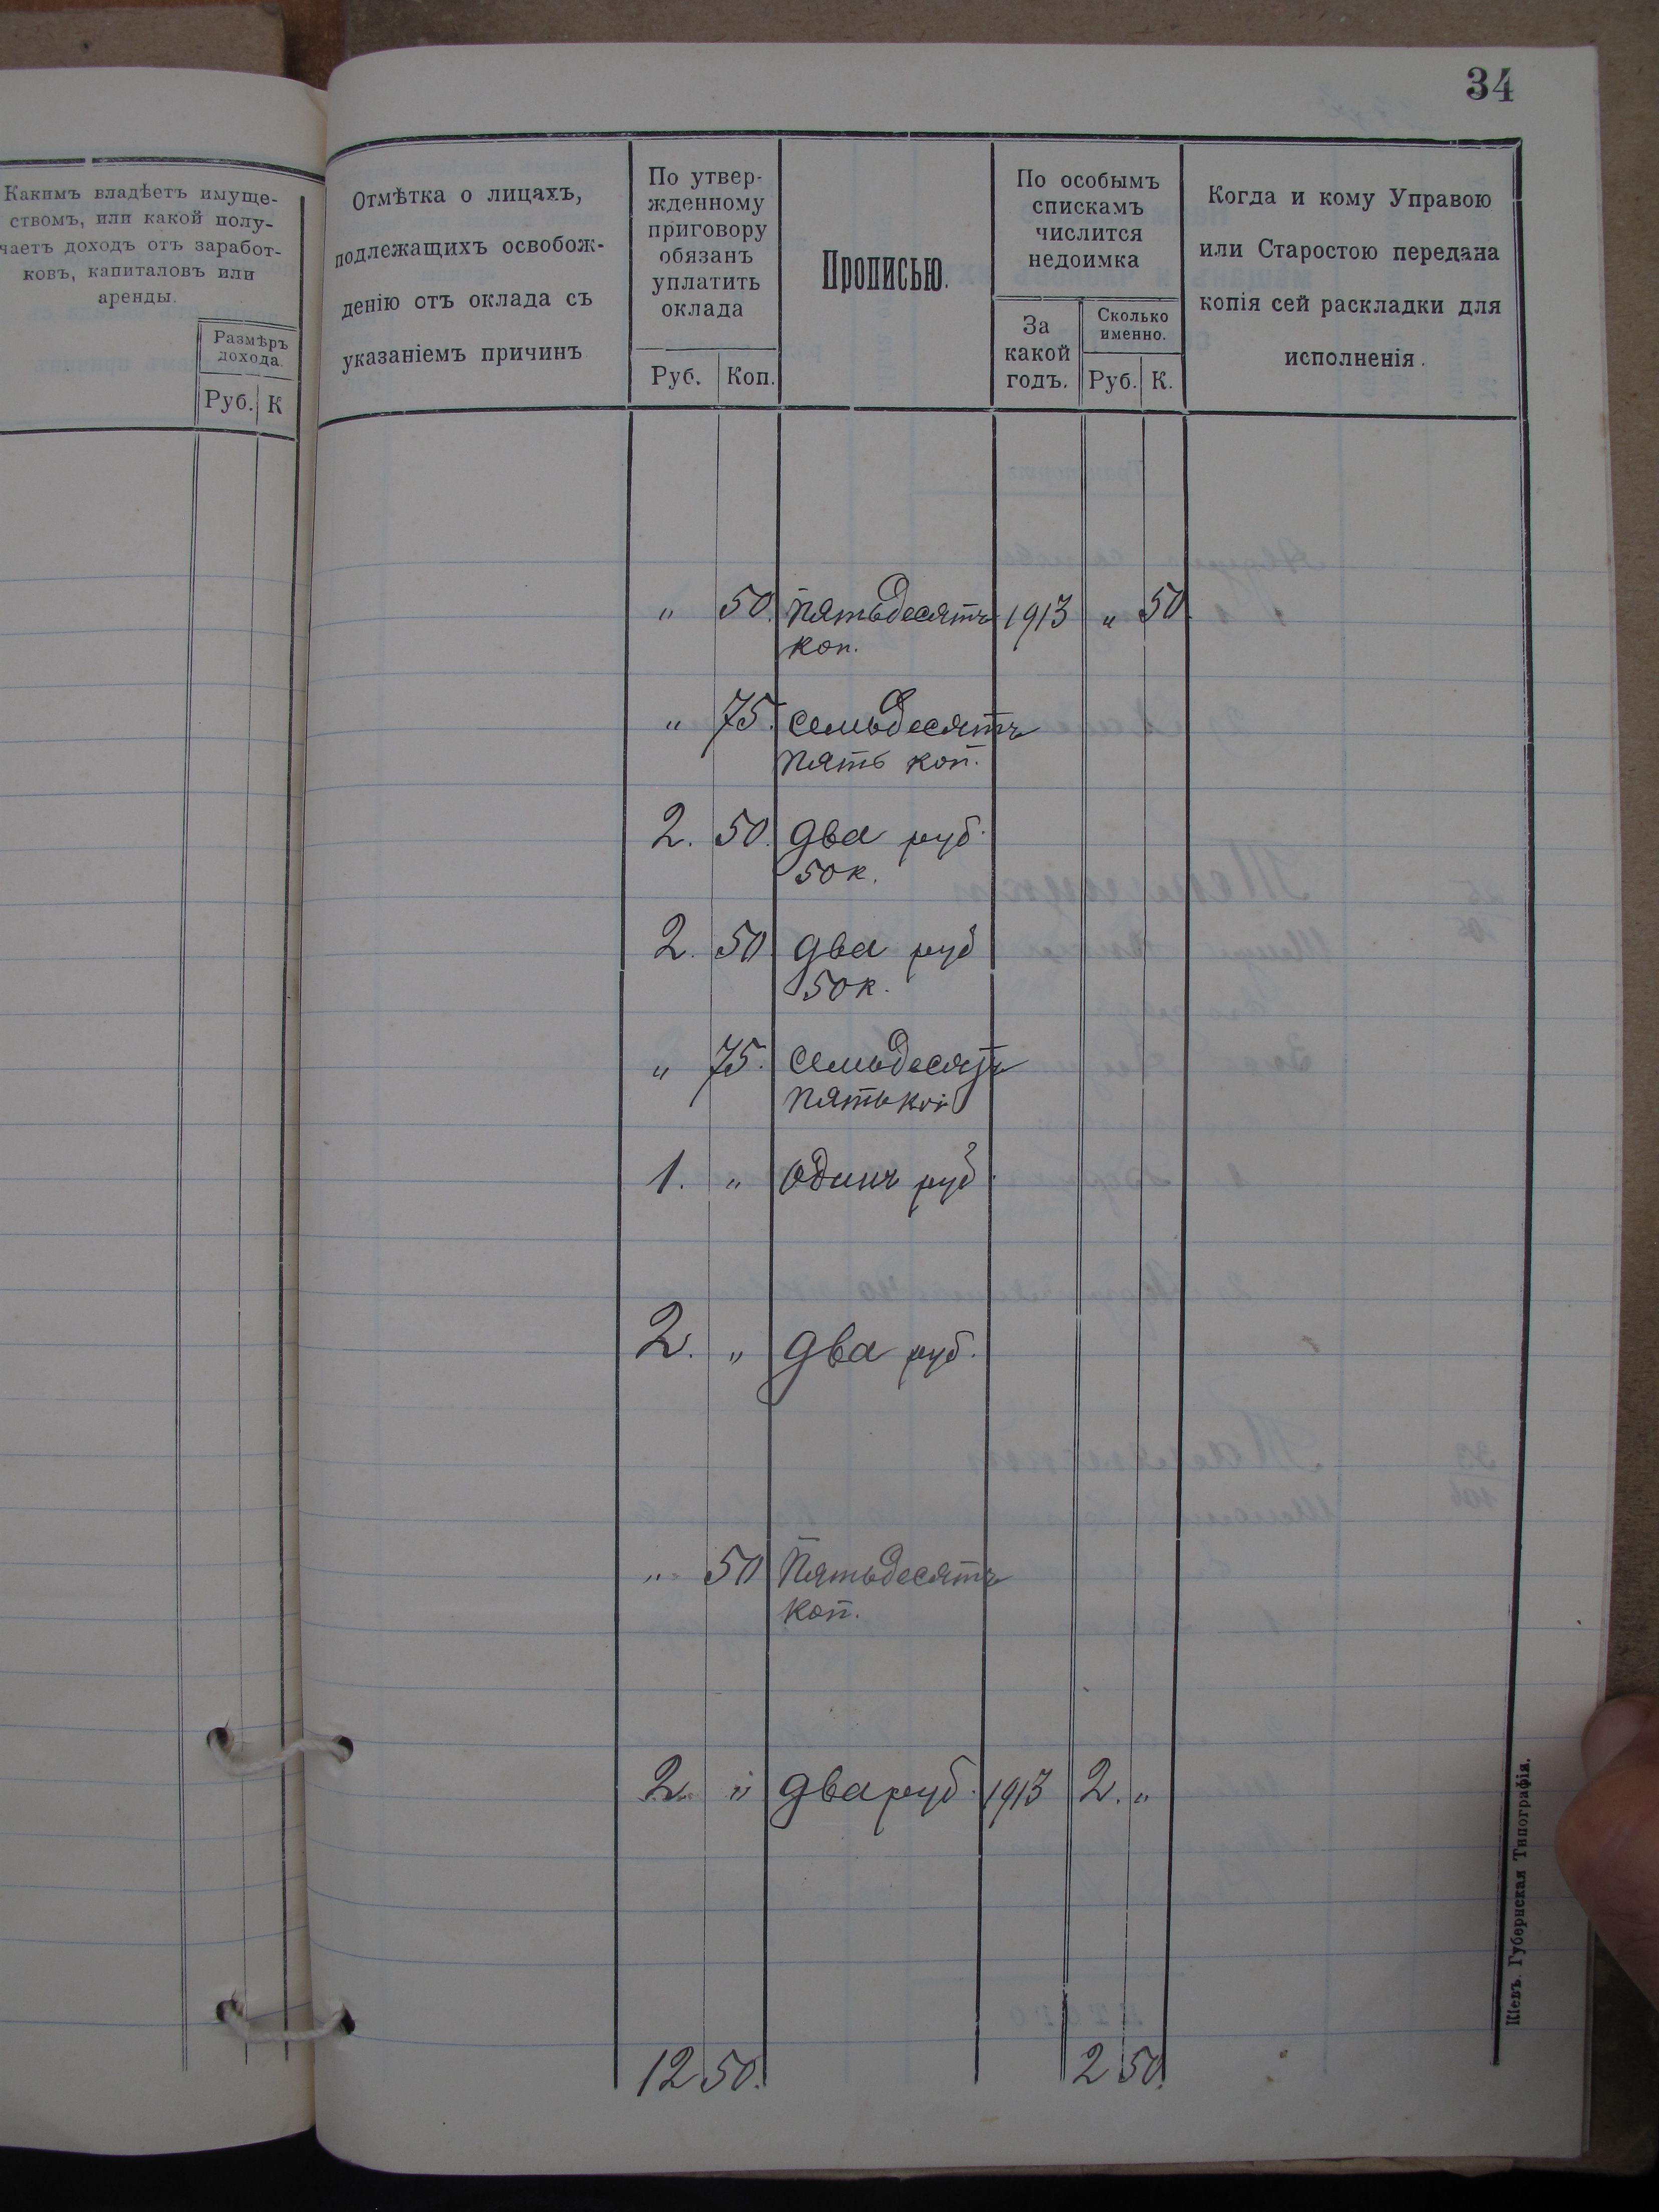 34
Какимъ владѣетъ имуще-
ствомъ, или какой полу-
чаетъ доходъ отъ заработ-
ковъ, капиталовъ или
аренды.
Размѣръ
дохода.
Руб. К
Отмѣтка о лицахъ,
подлежащихъ освобож-
денію отъ оклада съ
указаніемъ причинъ
По утвер-
жденному
приговору
обязанъ
уплатить
оклада
Руб. Коп.
Прописью.
По особымъ
спискамъ
числится
недоимка
За
какой
годъ.
Сколько
именно.
Руб. К.
Когда и кому Управою
или Старостою передана
копія сей раскладки для
исполненія.
„ 50. Пятьдесятъ 1913 „ 50.
коп.
„ 75. Семьдесятъ
пять коп.
2. 50. Два руб.
50 к.
2. 50 Два руб
50 к.
„ 75. Семьдесятъ
пять коп
1. „ Одинъ руб.
2. „ Два руб.
„ 50 Пятьдесятъ
коп.
2 „ Два руб. 1913 2. „
12 50. 2 50.
Кіевъ. Губернская Типографія.